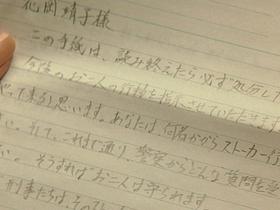 花岡靖子様
この手紙は、読み終えたら必ず処分して
今後のお二人の行動を指示させていただきます
やって来ると思います。あなたは、何者かからストーカー行
そして、これまで通り、警察からどんな質問を
い。そうすればお二人は守られます
刑事たちは、その